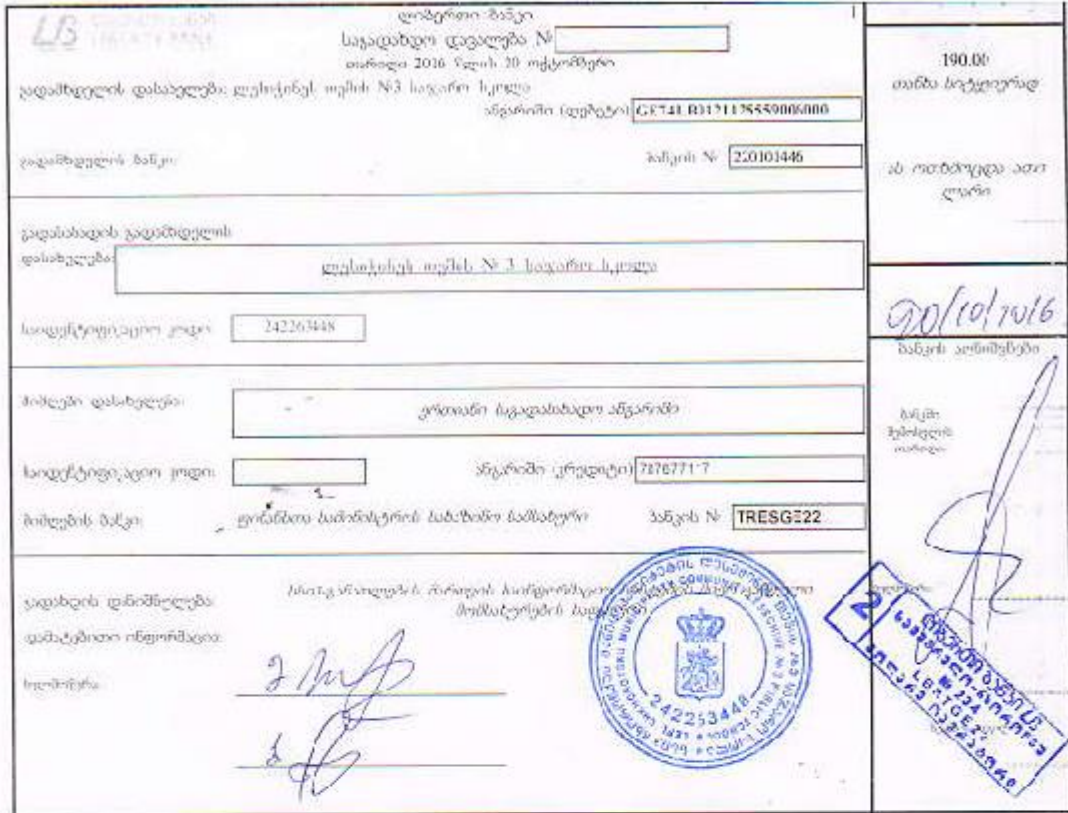 LB LIBERTY BANK
ლიბერთი ბანკი
საგადახდო დავალება №
თარიღი 2016 წლის 20 ოქტომბერი
გადამხდელის დასახელება: ლესიჭინეს თემის №3 საჯარო სკოლა
ანგარიში (დებეტი)
გადამხდელის ბანკი:
ბანკის № 220101446
გადასახადის გადამხდელის
დასახელება:
ლესიჭინეს თემის № 3 საჯარო სკოლა
საიდენტიფიკაციო კოდი: 242263448
მიმღები დასახელება:
ერთიანი საგადასახადო ანგარიში
საიდენტიფიკაციო კოდი:
ანგარიში (კრედიტი)
მიმღების ბანკი:
ფინანსთა სამინისტროს სახაზინო სამსახური
ბანკის № TRESGE22
გადახდის დანიშნულება:
სსიპ განათლების მართვის საინფორმაციო
მომსახურების საფასური
დამატებითი ინფორმაცია:
ხელმოწერა:
1
190.00
თანხა სიტყვიერად
ას ოთხმოცდა ათი
ლარი
20/10/2016
ბანკის აღნიშვნები
ბანკში
შემოსვლის
თარიღი:
242253448
2
ლიბერთი ბანკი LB
№ 234